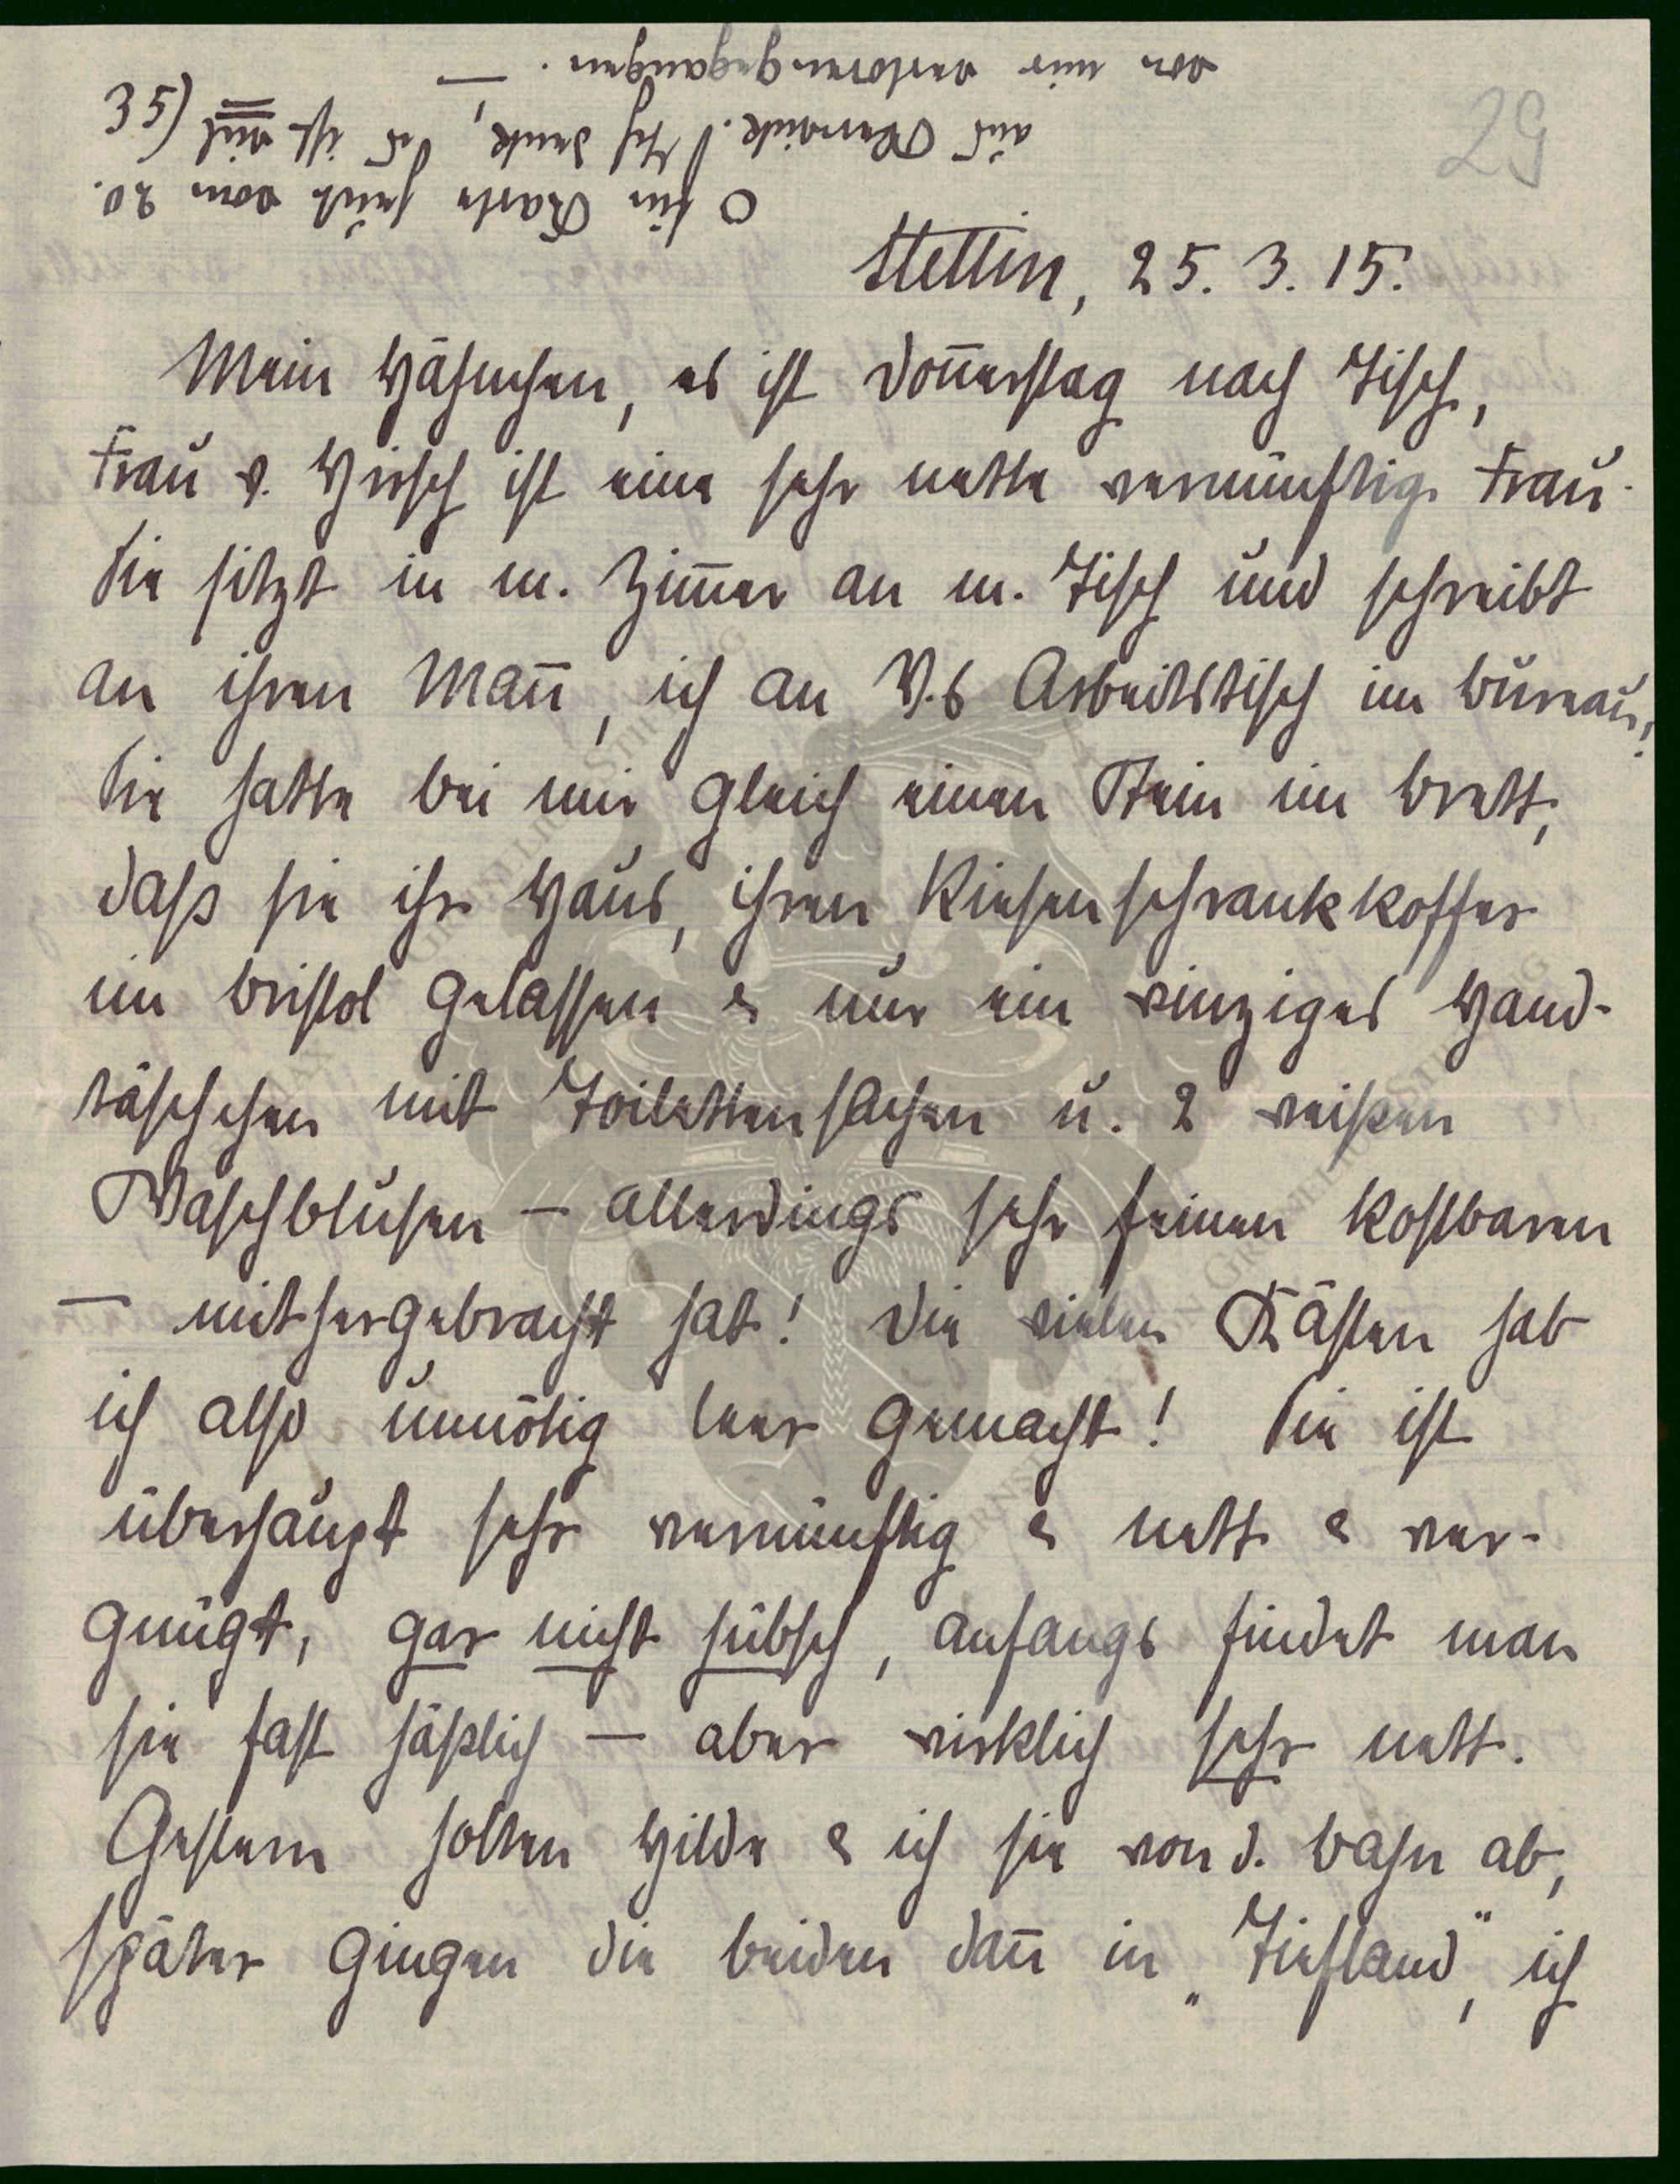 29
35)
O für Karte heut vom 20.
aus Ober. Ich denk, das ist viel
von mir verlorengegangen. —
Stettin, 25. 3. 15.
Mein Häschen, es ist Don̄erstag nach Tisch,
Frau v. Hirsch ist eine sehr nette vernünftige Frau.
Sie sitzt in m. Zim̄er an m. Tisch und schreibt
an ihren Man̄, ich an V.s Arbeitstisch im Bureau!
Sie hatte bei mir gleich einen Stein im Brett,
daß sie ihr Haus, ihren Riesenschrankkoffer
im Bristol gelassen & nur ein einziges Hand-
täschchen mit Toilettensachen u. 2 weißen
Waschblusen – allerdings sehr feinen kostbaren
– mithergebracht hat! Die vielen Kästen hab
ich also unnötig leer gemacht! Sie ist
überhaupt sehr vernünftig & nett & ver-
gnügt, gar nicht hübsch, anfangs findet man
sie fast häßlich – aber wirklich sehr nett.
Gestern holten Hilde & ich sie von d. Bahn ab,
später gingen die beiden dan̄ in „Tiefland", ich